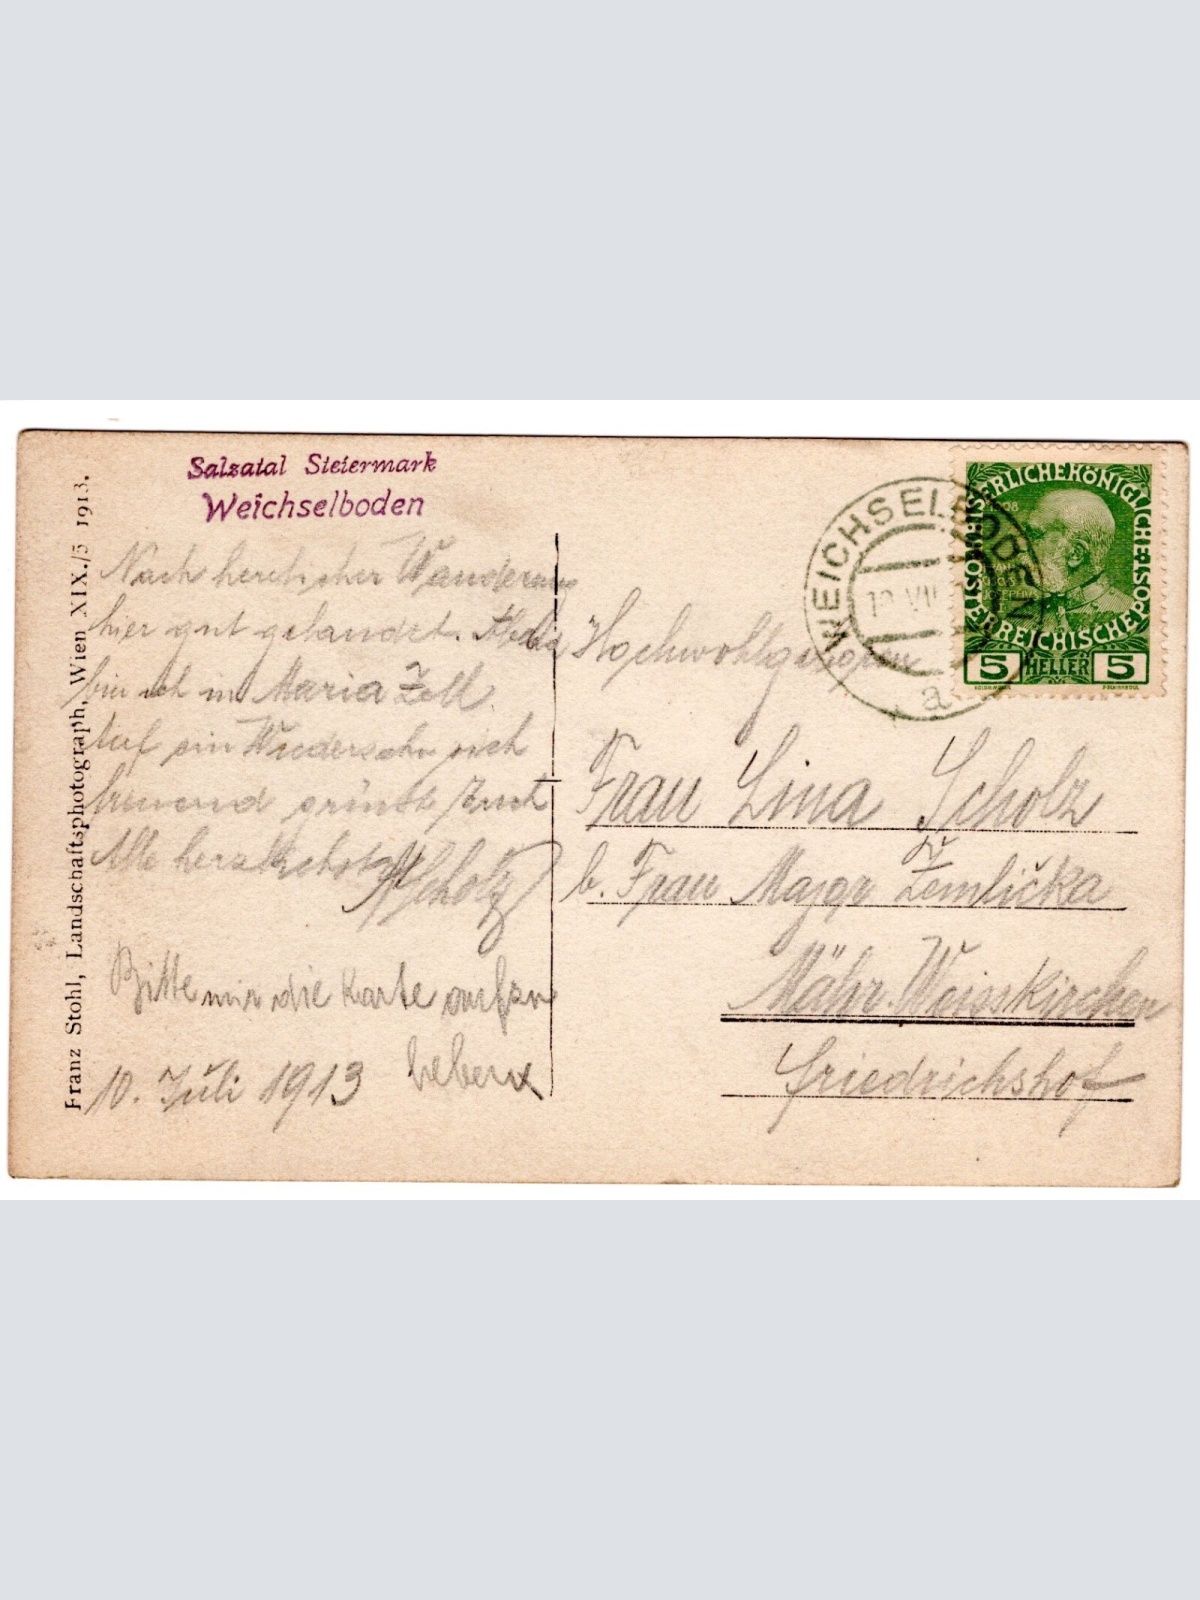 Franz Stohl, Landschaftsphotograph, Wien XIX./5 1913.
Salzatal Steiermark
Weichselboden
Nach herrlicher Wanderung
hier gut gelandet.
bin ich in Maria Zell
auf ein Wiedersehn sich
freuend grüsst Euch
Alle herzlichst
Scholz
Bitte mir die Karte aufzu
heben
10. Juli 1913
WEICHSELBODEN
a
KAISERLICHE KÖNIGLICHE
ÖSTERREICHISCHE POST
5 HELLER 5
Hochwohlgeboren
Frau Lina Scholz
b. Frau Major Žemlička
Mähr. Weisskirchen
Friedrichshof